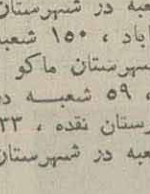 شعبه در شهرستان
آباد ، ۱۵۰ شعبه
شهرستان ماکو
، ۵۹ شعبه در
شهرستان نقده ، ۳۳
شعبه در شهرستان